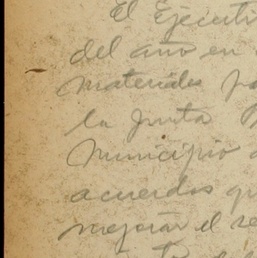 El Ejecuti
del año en
materiales pa
la Junta
Municipio
acuerdos qu
mejorar el se